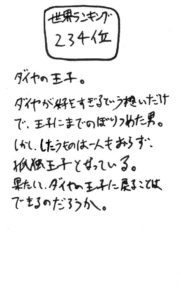 世界ランキング
234位
ダイヤの王子。
ダイヤが好きすぎるという想いだけ
で、王子にまでのぼりつめた男。
しかし、したうものは一人もおらず、
孤独王子となっている。
果たして、ダイヤの王子に戻ることは
できるのだろうか。